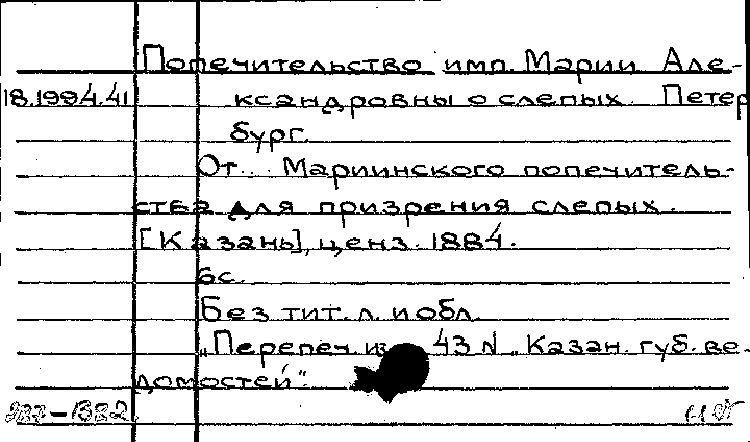 Попечительство имп. Марии Але-
18.1994.41 ксандровны о слепых. Петер
бург.
От... Мариинского попечитель-
ства для призрения слепых.
[Казань], ценз. 1884.
6с.
Без тит. л. и обл.
„Перепеч. из 43 N „Казан. губ. ве-
домостей".